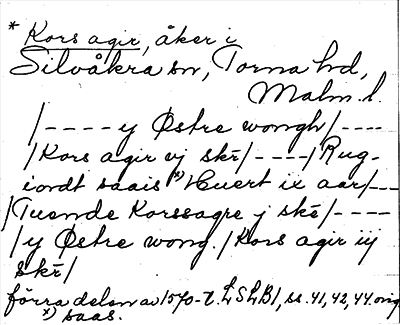 * Kors agir, åker i
Silvåkra sn, Torna hd,
Malm. l.
/---- y Østre wongh/----
/Kors agir vj skr̄/----/Rug-
iordt saais x) Huert ix aar/---
/Tuende Korssagre j skē/----
/y Østre wong./Kors agir iij
skr̄/
förra delen av 1570-t. LSLB1, ss. 41, 42, 44. orig
x) saas.